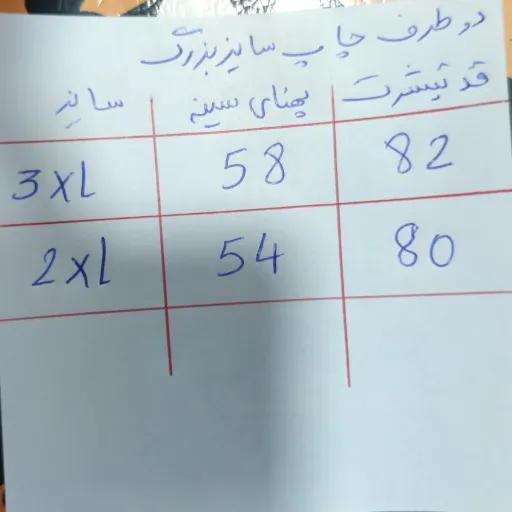 دو طرف چاپ سایز بزرگ
قد تیشرت پهنای سینه سایز
82 58 3XL
80 54 2XL